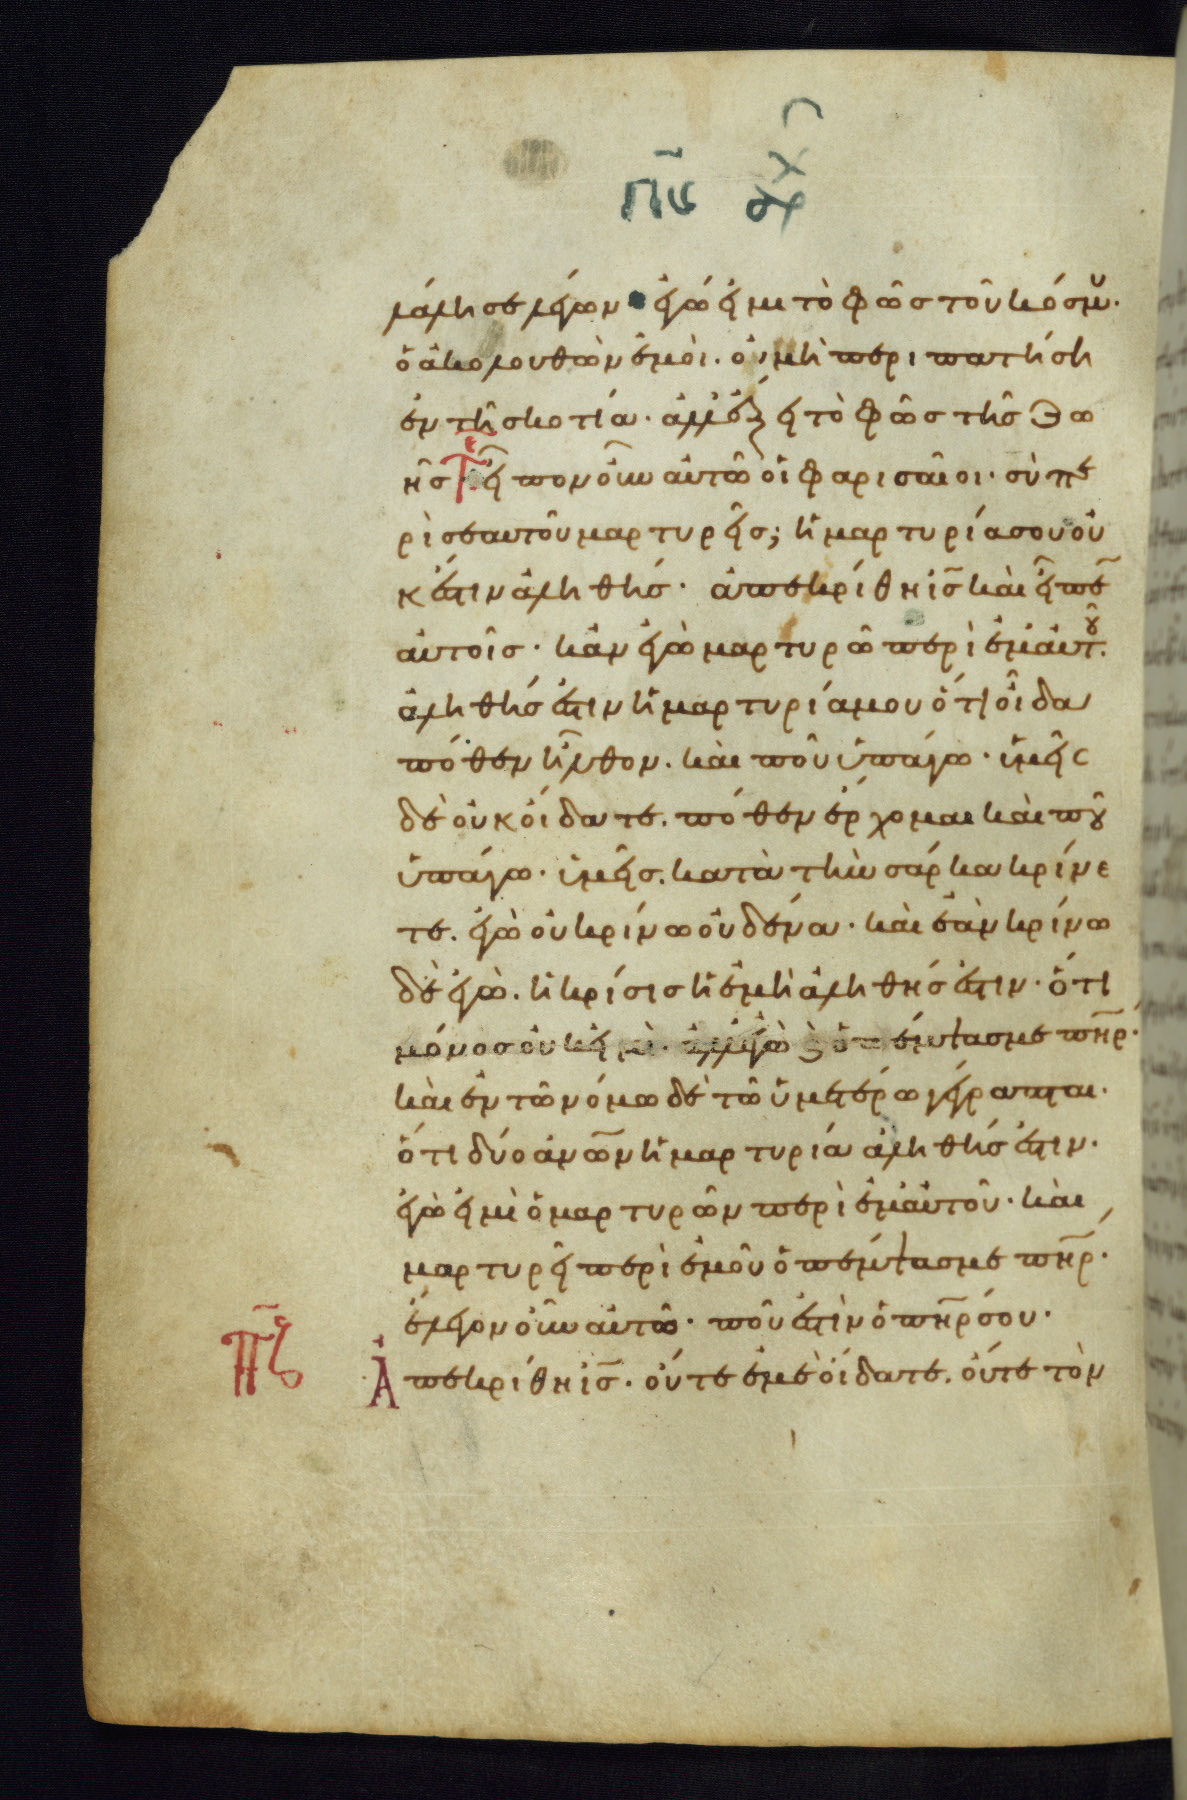 λάλησε λέγων· ἐγώ εἰμι τὸ φῶς τοῦ κόσμου·
ὁ ἀκολουθῶν ἐμοὶ· οὐ μὴ περιπατήση
ἐν τῆ σκοτία· ἀλλ' ἕξει τὸ φῶς τῆς ζω
ῆς· εἶπον οὖν αὐτῶ οἱ φαρισαῖοι· σὺ πε
ρὶ σεαυτοῦ μαρτυρεῖς; ἡ μαρτυρία σου οὐ
κ ἔστιν ἀληθής· ἀπεκρίθη ις̅ καὶ εἶπεν
αὐτοῖς· κἂν ἐγὼ μαρτυρῶ περὶ ἐμαυτοῦ·
ἀληθής ἐστιν ἡ μαρτυρία μου ὅτι οἶδα
πόθεν ἦλθον. καὶ ποῦ ὑπάγω· ὑμεῖς
δὲ οὐκ οἴδατε. πόθεν ἔρχομαι καὶ ποῦ
ὑπάγω· ὑμεῖς. κατὰ τὴν σάρκα κρίνε
τε. ἐγὼ οὐ κρίνω οὐδένα· καὶ ἐὰν κρίνω
δὲ ἐγὼ. ἡ κρίσις ἡ ἐμὴ ἀληθής ἐστιν· ὅτι
μόνος οὐκ εἰμὶ· ἀλλ' ἐγὼ καὶ ὁ πέμψας με πηρ̅·
καὶ ἐν τῶ νόμω δὲ τῶ ὑμετέρω γέγραπται·
ὅτι δύο ἀνων̅ ἡ μαρτυρία ἀληθής ἐστιν·
ἐγώ εἰμι ὁ μαρτυρῶν περὶ ἐμαυτοῦ· καὶ
μαρτυρεῖ περὶ ἐμοῦ ὁ πέμψας με πηρ̅·
ἔλεγον οὖν αὐτῶ· ποῦ ἐστὶν ὁ πηρ̅ σου·
Ἀπεκρίθη ις̅· οὔτε ἐμὲ οἴδατε. οὔτε τὸν